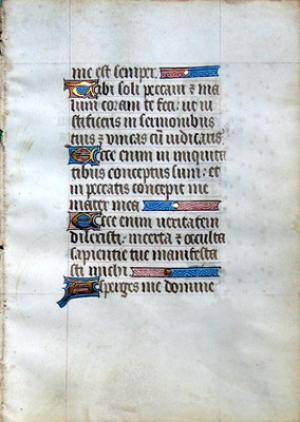 me est semper.
Tibi soli peccavi ⁊ ma
lum coram te feci: ut iu
stificeris in sermonibus
tuis ⁊ vincas cū iudicaris
Ecce enim in iniquita
tibus conceptus sum: et
in peccatis concepit me
mater mea.
Ecce enim veritatem
dilexisti: incerta ⁊ occulta
sapientie tue manifesta
sti michi.
Asperges me domine